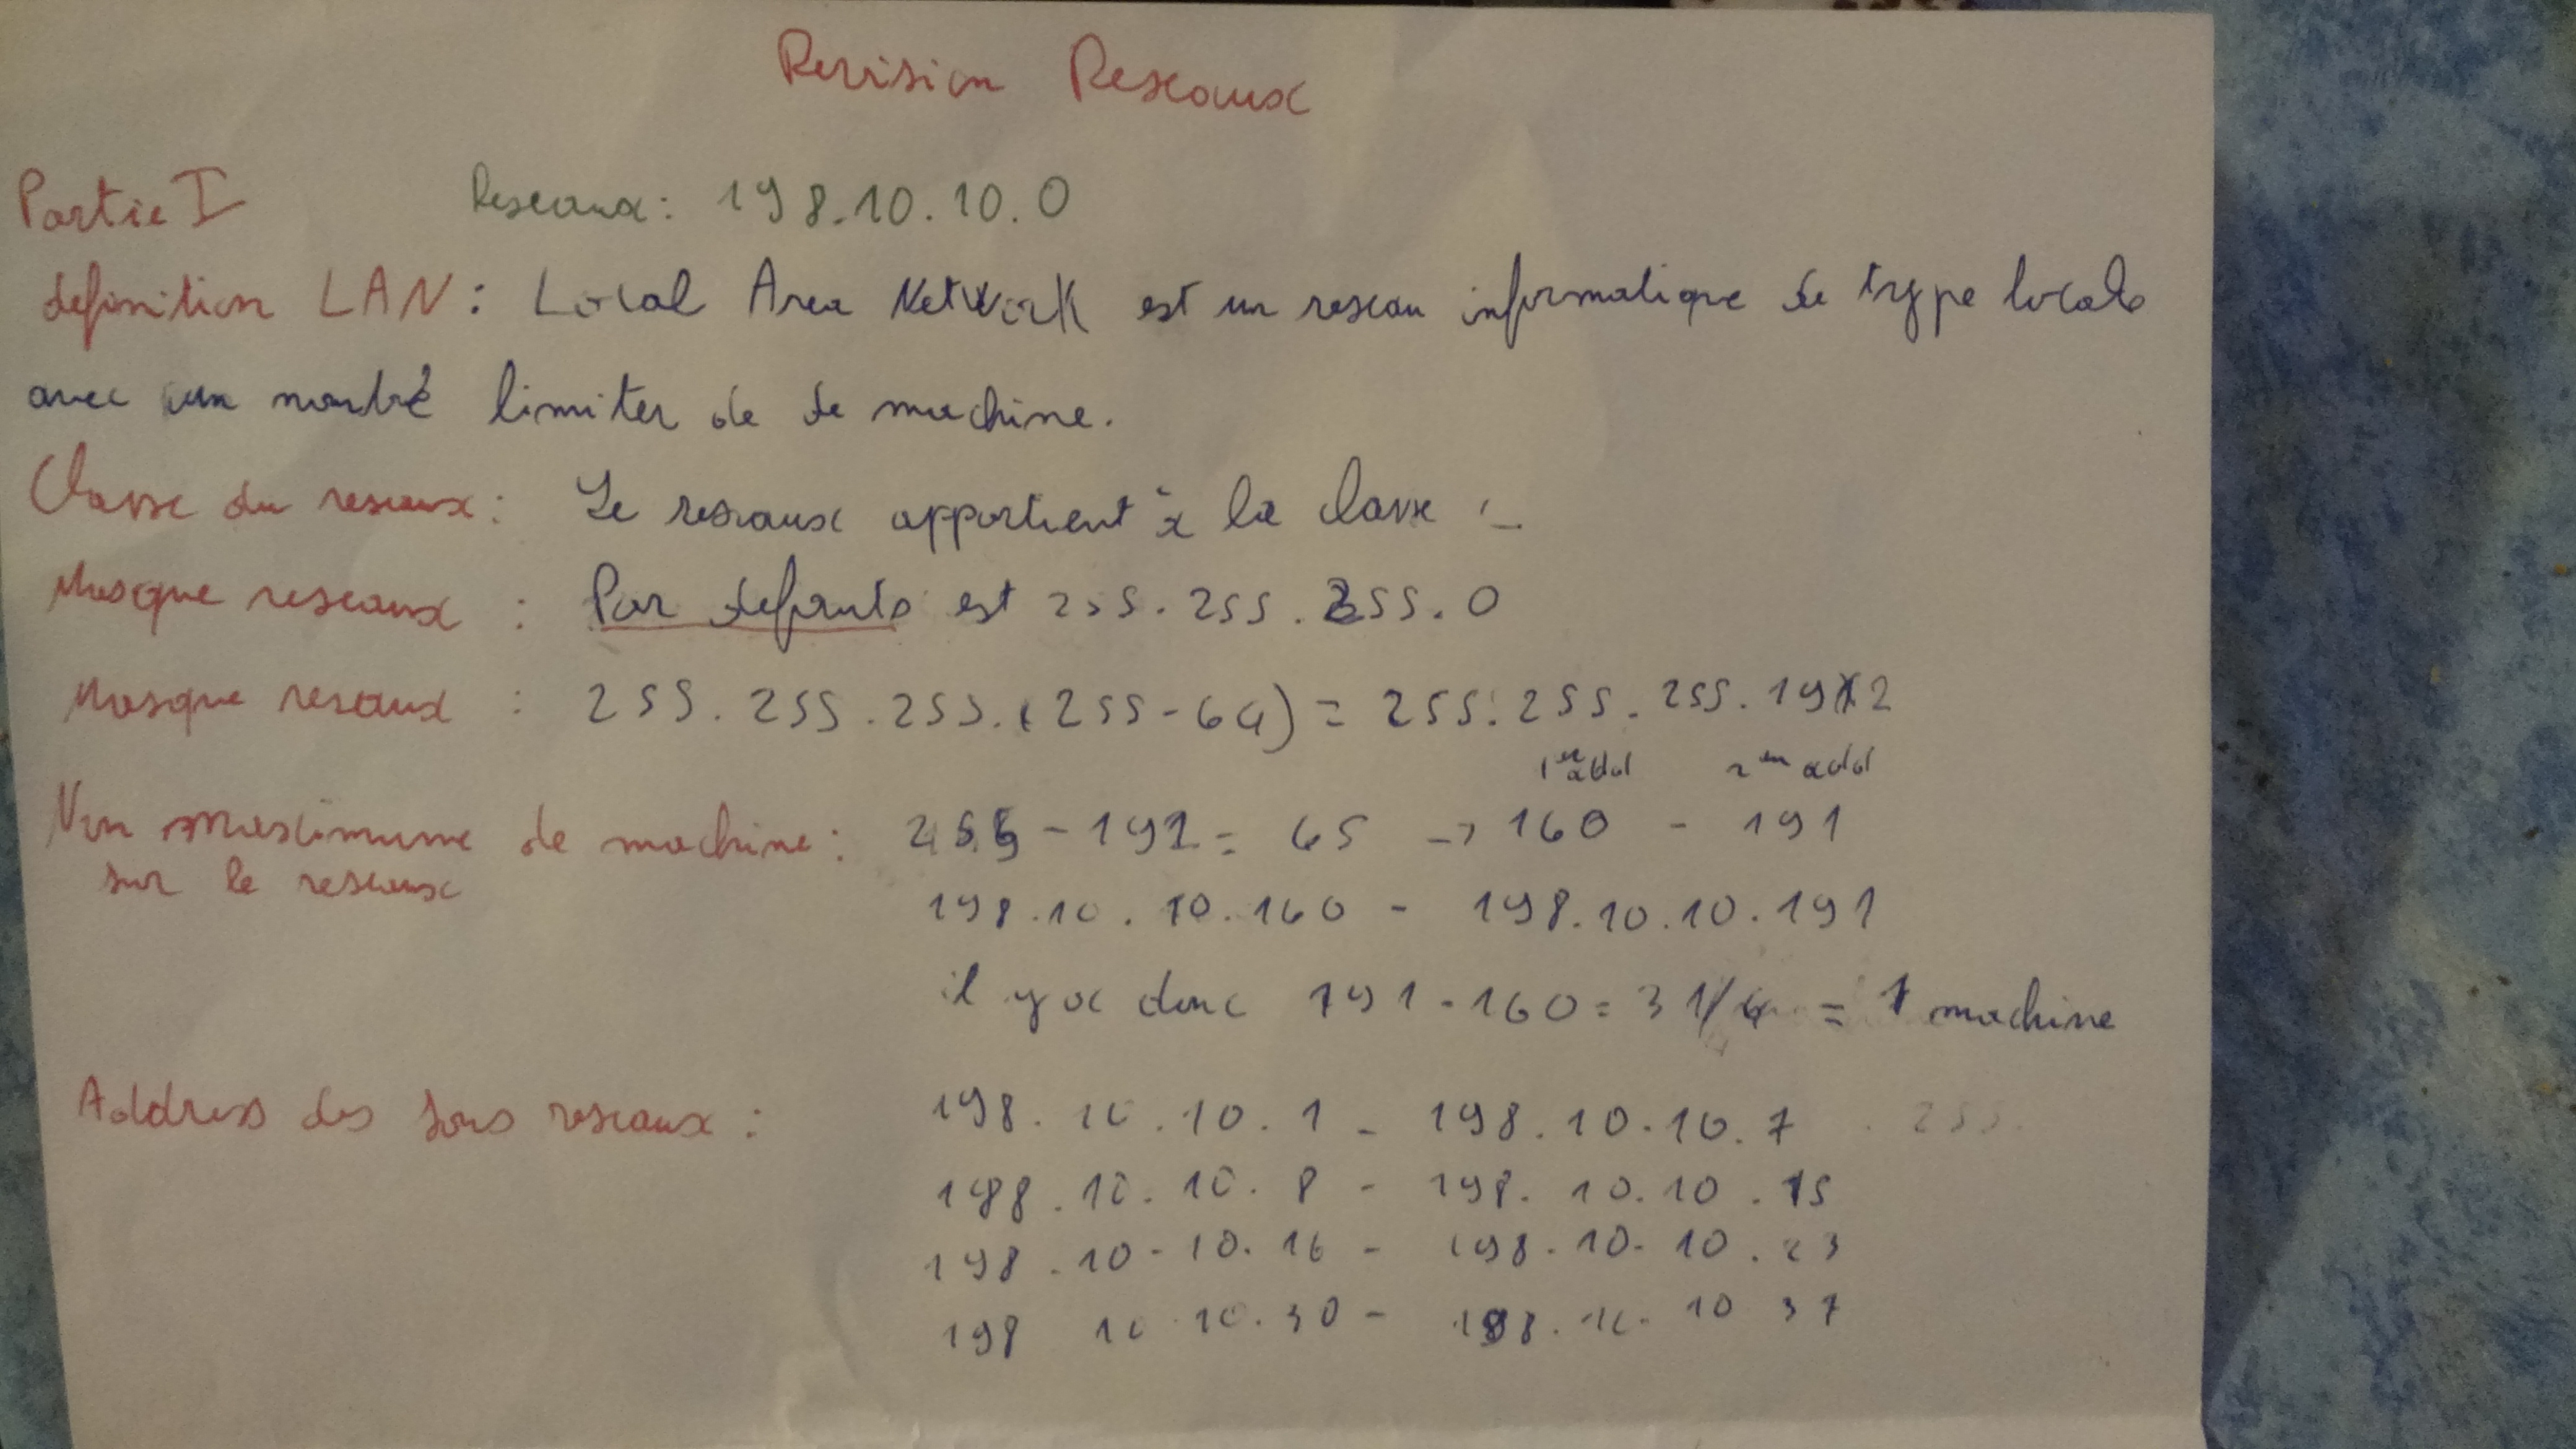 Revision Reseaux
Partie I Reseaux: 198.10.10.0
definition LAN: Local Area Network est un reseau informatique de type locale
avec un nombre limiter de de machine.
Classe du reseaux: Le reseaux appartient à la classe
Masque reseaux: Par defauts est 255.255.255.0
Masque reseaux: 255.255.255.(255-64) = 255.255.255.192
1er add 2em add
maximume de machine: 255-191= 65 → 160 - 191
sur le reseaux 198.10.10.160 - 198.10.10.191
il y a donc 191-160=31/4 = 7 machine
Address des sous reseaux: 198.10.10.1 - 198.10.10.7 .255.
198.10.10.8 - 198.10.10.15
198.10-10.16 - 198.10.10.23
198 10 10.30 - 198.10.10 37